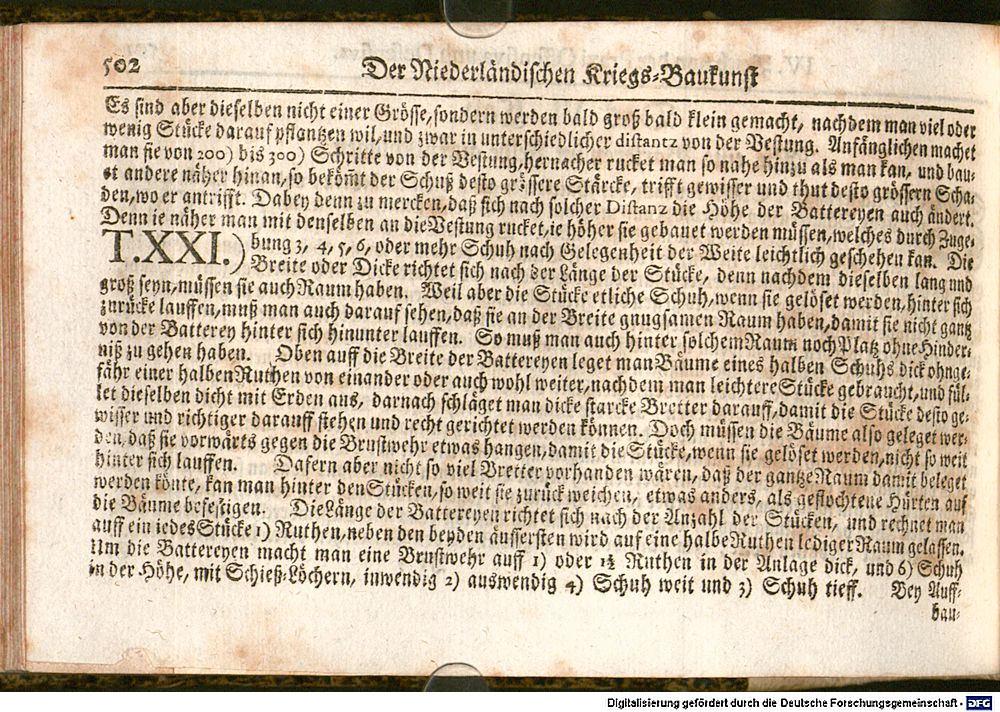 502
Der Niederländischen Kriegs-Baukunst
Es sind aber dieselben nicht einer Grösse, sondern werden bald groß bald klein gemacht, nachdem man viel oder
wenig Stücke darauf pflantzen wil, und zwar in unterschiedlicher distantz von der Vestung. Anfänglichen machet
man sie von 200) bis 300) Schritte von der Vestung, hernacher rucket man so nahe hinzu als man kan, und bau-
et andere näher hinan, so bekömt der Schuß desto grössere Stärcke, trifft gewisser und thut desto grössern Scha-
den, wo er antrifft. Dabey denn zu mercken, daß sich nach solcher Distanz die Höhe der Battereyen auch ändert.
Denn ie näher man mit denselben an die Vestung rucket, ie höher sie gebauet werden müssen, welches durch Zuge-
T.XXI.) bung 3, 4, 5, 6, oder mehr Schuh nach Gelegenheit der Weite leichtlich geschehen kan. Die
Breite oder Dicke richtet sich nach der Länge der Stücke, denn nachdem dieselben lang und
groß seyn, müssen sie auch Raum haben. Weil aber die Stücke etliche Schuh, wenn sie gelöset werden, hinter sich
zurücke lauffen, muß man auch darauf sehen, daß sie an der Breite gnugsamen Raum haben, damit sie nicht gantz
von der Batterey hinter sich hinunter lauffen. So muß man auch hinter solchem Raum noch Platz ohne Hinder-
niß zu gehen haben. Oben auff die Breite der Battereyen leget man Bäume eines halben Schuhs dick ohnge-
fähr einer halben Ruthen von einander oder auch wohl weiter, nachdem man leichtere Stücke gebraucht, und fül-
let dieselben dicht mit Erden aus, darnach schläget man dicke starcke Bretter darauff, damit die Stücke desto ge-
wisser und richtiger darauff stehen und recht gerichtet werden können. Doch müssen die Bäume also geleget wer-
den, daß sie vorwärts gegen die Brustwehr etwas hangen, damit die Stücke, wenn sie gelöset werden, nicht so weit
hinter sich lauffen. Dafern aber nicht so viel Bretter vorhanden wären, daß der gantze Raum damit beleget
werden könte, kan man hinter den Stücken, so weit sie zurück weichen, etwas anders, als geflochtene Hürten auf
die Bäume befestigen. Die Länge der Battereyen richtet sich nach der Anzahl der Stücken, und rechnet man
auff ein iedes Stücke 1) Ruthen, neben den beyden äussersten wird auf eine halbe Ruthen lediger Raum gelassen.
Um die Battereyen macht man eine Brustwehr auff 1) oder 1½ Ruthen in der Anlage dick, und 6) Schuh
in der Höhe, mit Schieß-Löchern, inwendig 2) auswendig 4) Schuh weit und 3) Schuh tieff. Bey Auff-
bau-
Digitalisierung gefördert durch die Deutsche Forschungsgemeinschaft - DFG